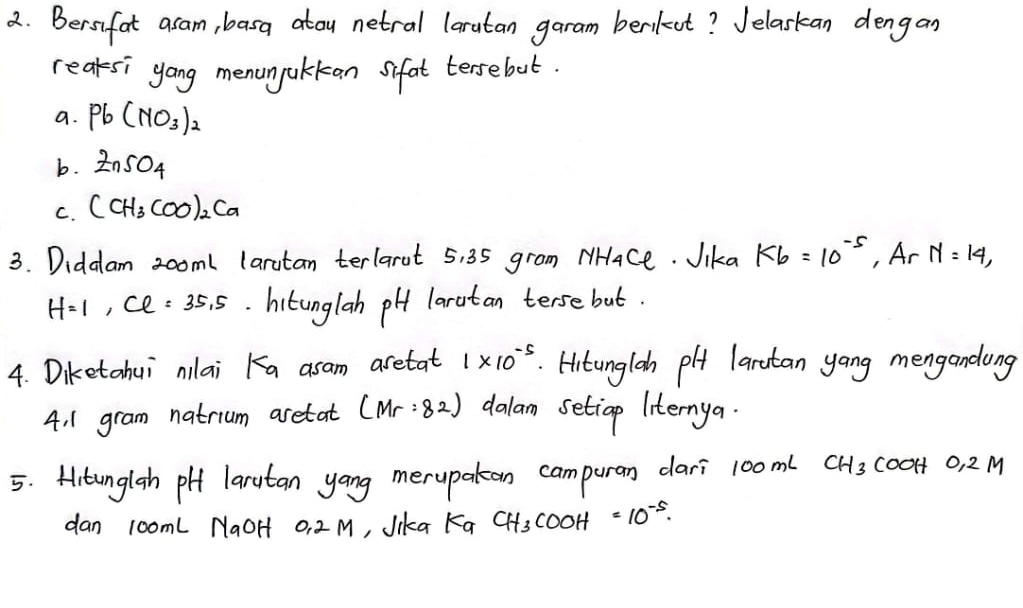 2. Bersifat asam, basa atau netral larutan garam berikut? Jelaskan dengan
reaksi yang menunjukkan sifat tersebut.
a. Pb(NO₃)₂
b. ZnSO₄
c. (CH₃COO)₂Ca
3. Didalam 200mL larutan terlarut 5,35 gram NH₄Cl. Jika Kb = 10⁻⁵, Ar N = 14,
H=1, Cl = 35,5. hitunglah pH larutan tersebut.
4. Diketahui nilai Ka asam asetat 1 x 10⁻⁵. Hitunglah pH larutan yang mengandung
4,1 gram natrium asetat (Mr :82) dalam setiap liternya.
5. Hitunglah pH larutan yang merupakan campuran dari 100 mL CH₃COOH 0,2 M
dan 100mL NaOH 0,2 M, Jika Ka CH₃COOH = 10⁻⁵.